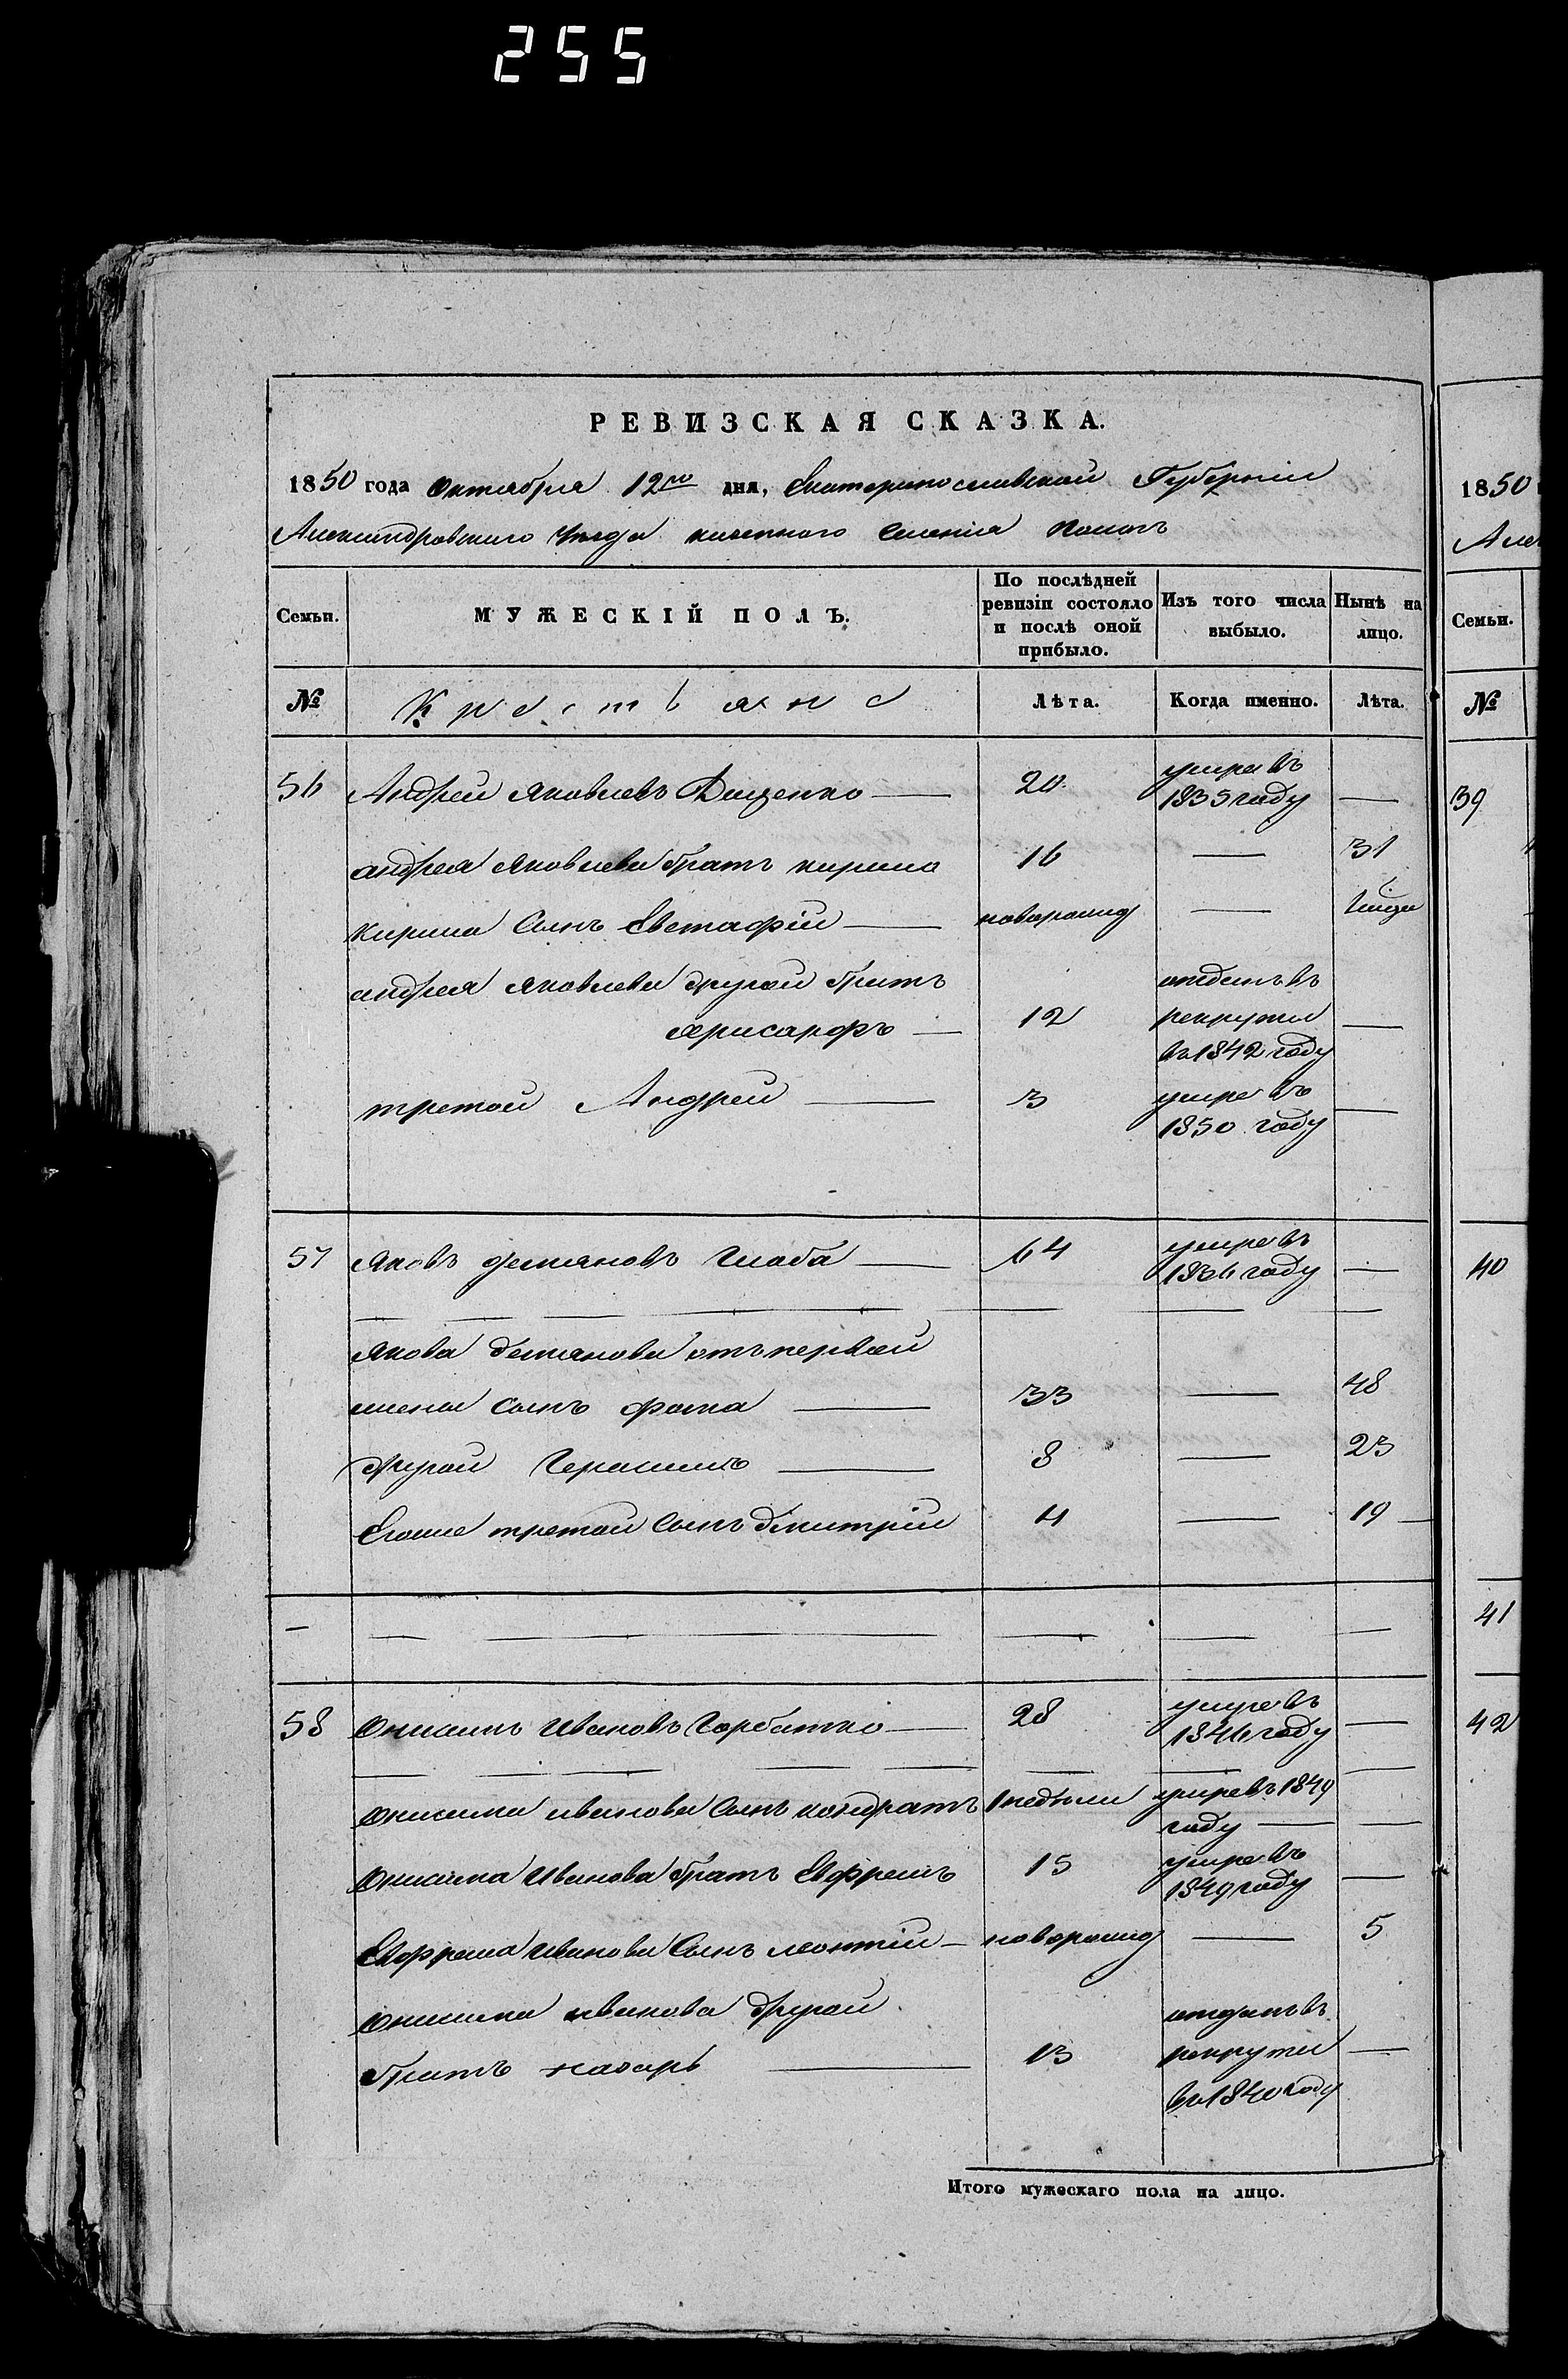 255
РЕВИЗСКАЯ СКАЗКА.
1850 года Октября 12го дня, Екатеринославской Губернии
Александровского уезда казенного Селения
Семьи.
МУЖЕСКІЙ ПОЛЪ.
По послѣдней ревизіи состояло и послѣ оной прибыло.
Изъ того числа выбыло.
Нынѣ на лицо.
№ Крестьяне Лѣта. Когда именно. Лѣта.
56 Андрей Яковлевъ 20 умре въ 1835 году —
андрея Яковлева братъ кирила 16 — 31
кирила Сынъ Евстафій — новорожд — 1 года
андрея Яковлева другой братъ
хрисанфъ — 12 отданъ в рекруты въ 1842 году —
третой Андрей — 3 умре въ 1850 году —
57 Яковъ демяновъ — 64 умре въ 1836 году —
Якова демянова отъ первой
жены сынъ фома — 33 — 48
другой Герасимъ — 8 — 23
Егоже третой Сынъ дмитрій 4 — 19
58 Онисимъ Ивановъ Горбатко — 28 умре въ 1846 году —
Онисима иванова Сынъ кондратъ 1 недели умре въ 1849 году — —
Онисима Иванова братъ Евфремъ 15 умре въ 1849 году —
Евфрема Иванова Сынъ леонтій — новорожд — 5
Онисима иванова другой
братъ назарь — 13 отданъ в рекруты въ 1840 году —
Итого мужескаго пола на лицо.
1850
Але
Семьи.
№
39
40
41
42